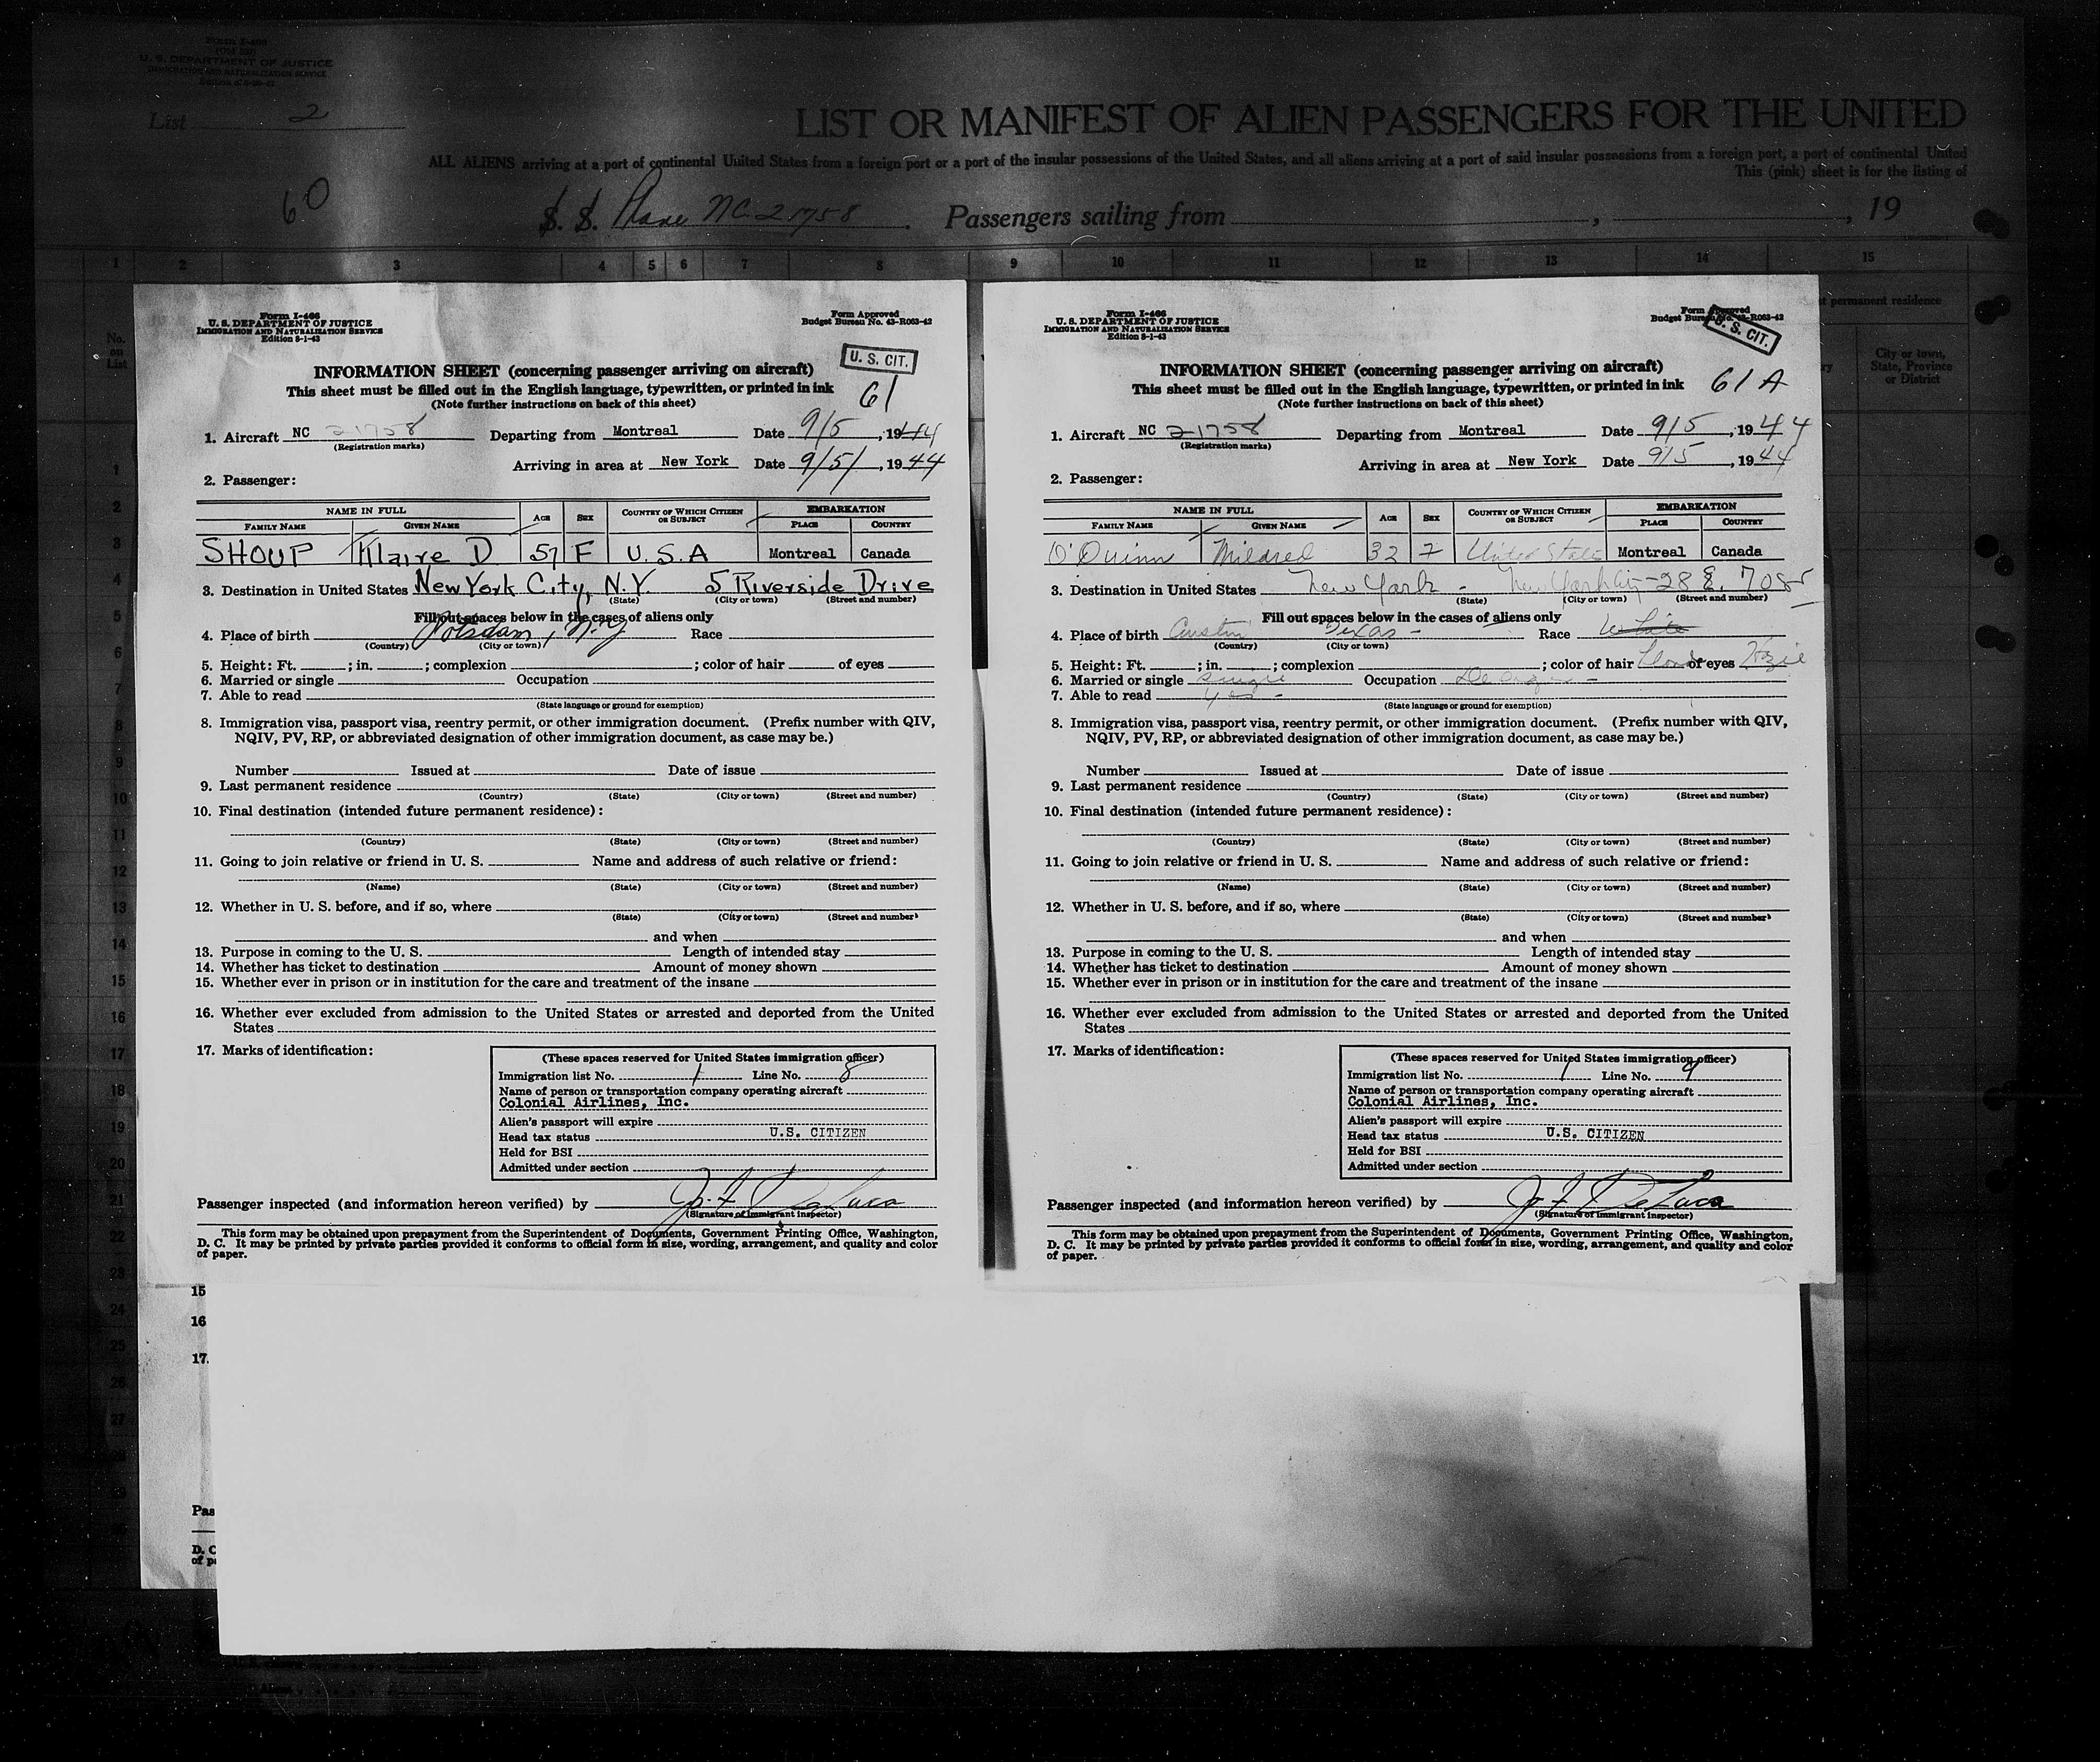 Form I-466
U. S. DEPARTMENT OF JUSTICE
IMMIGRATION AND NATURALIZATION SERVICE
List 2
LIST OR MANIFEST OF ALIEN PASSENGERS FOR THE UNITED
ALL ALIENS arriving at a port of continental United States from a foreign port or a port of the insular possessions of the United States, and all aliens arriving at a port of said insular possessions from a foreign port, a port of continental United
This (pink) sheet is for the listing of
60
S. S. Plane NC 21758 Passengers sailing from , , 19
1 2 3 4 5 6 7 8 9 10 11 12 13 14 15
permanent residence
No. on List
City or town, State, Province or District
Form I-466
U. S. DEPARTMENT OF JUSTICE
IMMIGRATION AND NATURALIZATION SERVICE
Edition 8-1-43
Form Approved
Budget Bureau No. 43-R063-42
U. S. CIT.
INFORMATION SHEET (concerning passenger arriving on aircraft)
This sheet must be filled out in the English language, typewritten, or printed in ink
61
(Note further instructions on back of this sheet)
1. Aircraft NC 21758 Departing from Montreal Date 9/5, 1944
(Registration marks)
Arriving in area at New York Date 9/5/, 1944
2. Passenger:
NAME IN FULL AGE SEX COUNTRY OF WHICH CITIZEN OR SUBJECT EMBARKATION
FAMILY NAME GIVEN NAME PLACE COUNTRY
SHOUP Klaire D 57 F U.S.A Montreal Canada
3. Destination in United States New York City, N.Y. 5 Riverside Drive
(State) (City or town) (Street and number)
Fill out spaces below in the cases of aliens only
4. Place of birth Potsdam, N.Y Race
(Country) (City or town)
5. Height: Ft. ; in. ; complexion ; color of hair of eyes
6. Married or single Occupation
7. Able to read
(State language or ground for exemption)
8. Immigration visa, passport visa, reentry permit, or other immigration document. (Prefix number with QIV,
NQIV, PV, RP, or abbreviated designation of other immigration document, as case may be.)
Number Issued at Date of issue
9. Last permanent residence
(Country) (State) (City or town) (Street and number)
10. Final destination (intended future permanent residence):
(Country) (State) (City or town) (Street and number)
11. Going to join relative or friend in U. S. Name and address of such relative or friend:
(Name) (State) (City or town) (Street and number)
12. Whether in U. S. before, and if so, where
(State) (City or town) (Street and number)
and when
13. Purpose in coming to the U. S. Length of intended stay
14. Whether has ticket to destination Amount of money shown
15. Whether ever in prison or in institution for the care and treatment of the insane
16. Whether ever excluded from admission to the United States or arrested and deported from the United
States
17. Marks of identification:
(These spaces reserved for United States immigration officer)
Immigration list No. 1 Line No. 8
Name of person or transportation company operating aircraft
Colonial Airlines, Inc.
Alien's passport will expire
Head tax status U.S. CITIZEN
Held for BSI
Admitted under section
Passenger inspected (and information hereon verified) by J. F. DeLuca
(Signature of immigrant inspector)
This form may be obtained upon prepayment from the Superintendent of Documents, Government Printing Office, Washington,
D. C. It may be printed by private parties provided it conforms to official form in size, wording, arrangement, and quality and color
of paper.
Form I-466
U. S. DEPARTMENT OF JUSTICE
IMMIGRATION AND NATURALIZATION SERVICE
Edition 8-1-43
Form Approved
Budget Bureau No. 43-R063-42
U. S. CIT.
INFORMATION SHEET (concerning passenger arriving on aircraft)
This sheet must be filled out in the English language, typewritten, or printed in ink
61 A
(Note further instructions on back of this sheet)
1. Aircraft NC 21758 Departing from Montreal Date 9/5, 1944
(Registration marks)
Arriving in area at New York Date 9/5, 1944
2. Passenger:
NAME IN FULL AGE SEX COUNTRY OF WHICH CITIZEN OR SUBJECT EMBARKATION
FAMILY NAME GIVEN NAME PLACE COUNTRY
O'Quinn Mildred 32 F United States Montreal Canada
3. Destination in United States New York - New York City - 28 E. 70 St
(State) (City or town) (Street and number)
Fill out spaces below in the cases of aliens only
4. Place of birth Austin Texas - Race White
(Country) (City or town)
5. Height: Ft. ; in. ; complexion ; color of hair of eyes
6. Married or single Single Occupation
7. Able to read yes -
(State language or ground for exemption)
8. Immigration visa, passport visa, reentry permit, or other immigration document. (Prefix number with QIV,
NQIV, PV, RP, or abbreviated designation of other immigration document, as case may be.)
Number Issued at Date of issue
9. Last permanent residence
(Country) (State) (City or town) (Street and number)
10. Final destination (intended future permanent residence):
(Country) (State) (City or town) (Street and number)
11. Going to join relative or friend in U. S. Name and address of such relative or friend:
(Name) (State) (City or town) (Street and number)
12. Whether in U. S. before, and if so, where
(State) (City or town) (Street and number)
and when
13. Purpose in coming to the U. S. Length of intended stay
14. Whether has ticket to destination Amount of money shown
15. Whether ever in prison or in institution for the care and treatment of the insane
16. Whether ever excluded from admission to the United States or arrested and deported from the United
States
17. Marks of identification:
(These spaces reserved for United States immigration officer)
Immigration list No. 1 Line No. 9
Name of person or transportation company operating aircraft
Colonial Airlines, Inc.
Alien's passport will expire
Head tax status U.S. CITIZEN
Held for BSI
Admitted under section
Passenger inspected (and information hereon verified) by J. F. DeLuca
(Signature of immigrant inspector)
This form may be obtained upon prepayment from the Superintendent of Documents, Government Printing Office, Washington,
D. C. It may be printed by private parties provided it conforms to official form in size, wording, arrangement, and quality and color
of paper.
15
16
17.
Pas
D. C
of p